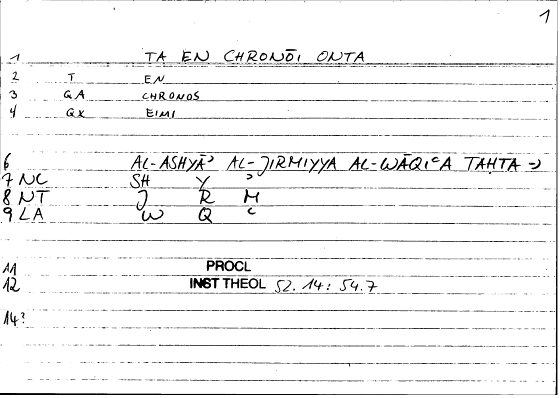 1
1 TA EN CHRONŌI ONTA
2 T EN
3 GA CHRONOS
4 GX EIMI
6 AL-ASHYĀʾ AL-JIRMIYYA AL-WĀQIʿA TAḤTA →
7 NC SH Y ʾ
8 NT J R M
9 LA W Q ʿ
11 PROCL
12 INST THEOL 52.14: 54.7
14?